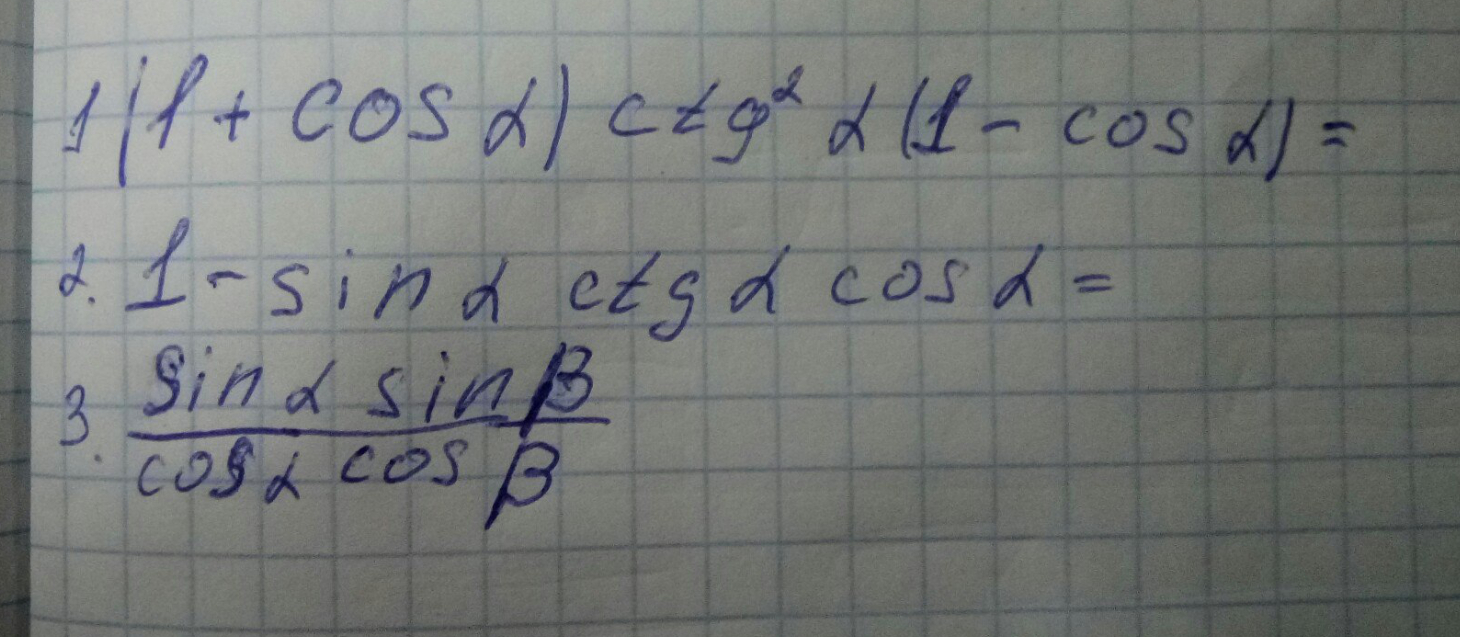 1 (1 + cos α) ctg² α (1 - cos α) =
2. 1 - sin α ctg α cos α =
3. sin α sin β
cos α cos β